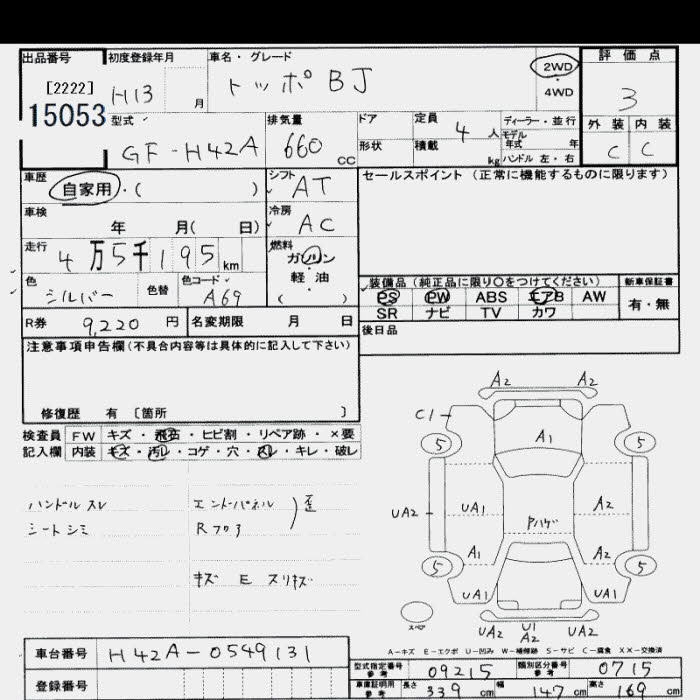 出品番号 初度登録年月 車名・グレード 評価点
[2222] H13 月 トッポBJ 2WD 3
15053 4WD
型式 排気量 ドア 定員 4人 ディーラー・並行 外装 内装
GF-H42A 660 CC 形状 積載 kg モデル年式 年 C C
ハンドル 左・右
車歴 自家用・( ) シフト AT セールスポイント(正常に機能するものに限ります)
車検 年 月( 日) 冷房 AC
走行 4万5千195km 燃料 ガソリン
軽・油
色 シルバー 色替 色コード A69 ( )
装備品(純正品に限り〇をつけてください) 新車保証書
PS PW ABS エアB AW 有・無
SR ナビ TV カワ
R券 9,220円 名変期限 月 日 後日品
注意事項申告欄(不具合内容等は具体的に記入して下さい)
修復歴 有〔箇所 〕
検査員 FW キズ・飛石・ヒビ割・リペア跡・×要
記入欄 内装 キズ・汚レ・コゲ・穴・スレ・キレ・破レ
ハンドル スレ エンドパネル 歪
シート シミ Rフロア
キズ E スリキズ
A2 A2
C1
5 A1 5
UA2 UA1 A2
Pハゲ
A1 A2
5 5
UA1 UA1
スペア UA2 U1 UA2
A2
A-キズ E-エクボ U-凹み W-補修跡 S-サビ C-腐食 XX-交換済
車台番号 H42A-0549131
登録番号
型式指定番号 参考 09215 類別区分番号 参考 0715
車庫証明用 参考 長さ 339cm 幅 147cm 高さ 169cm